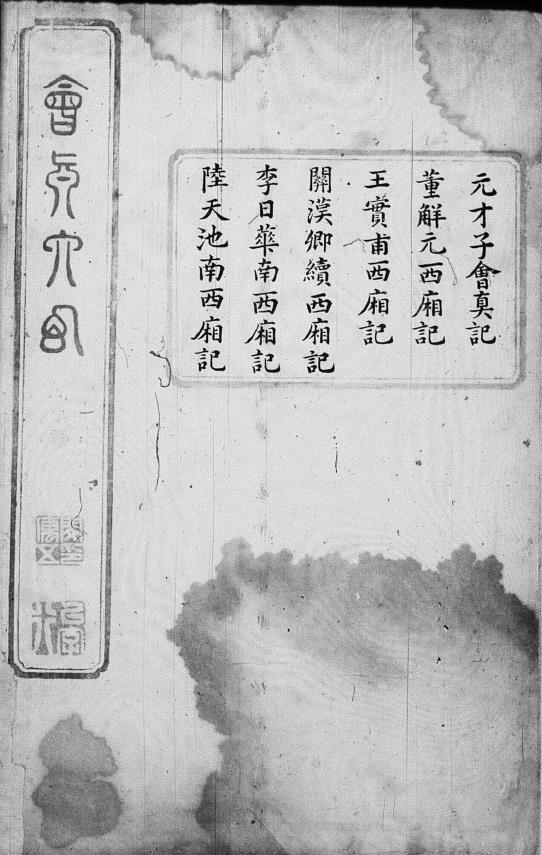 元才子會真記
董解元西廂記
王實甫西廂記
關漢卿續西廂記
李日華南西廂記
陸天池南西廂記
會真六幻